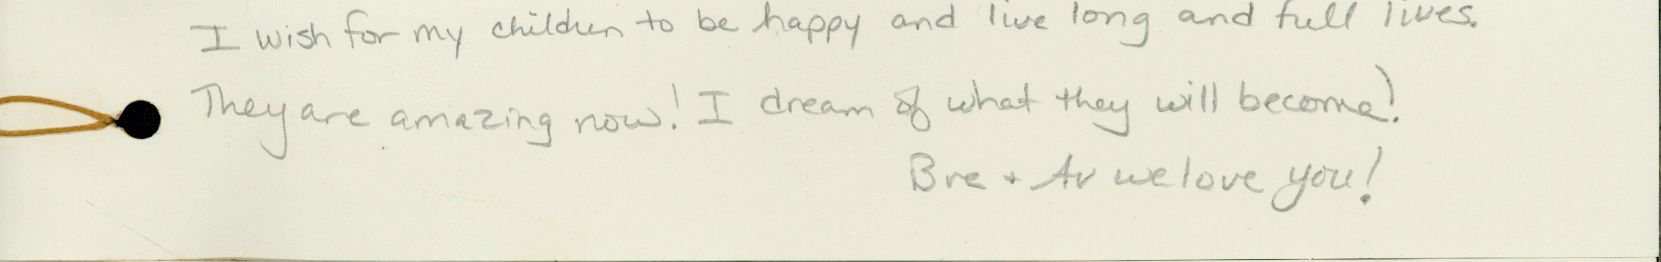 I wish for my children to be happy and live long and full lives.
They are amazing now! I dream of what they will become!
Bre + Av we love you!